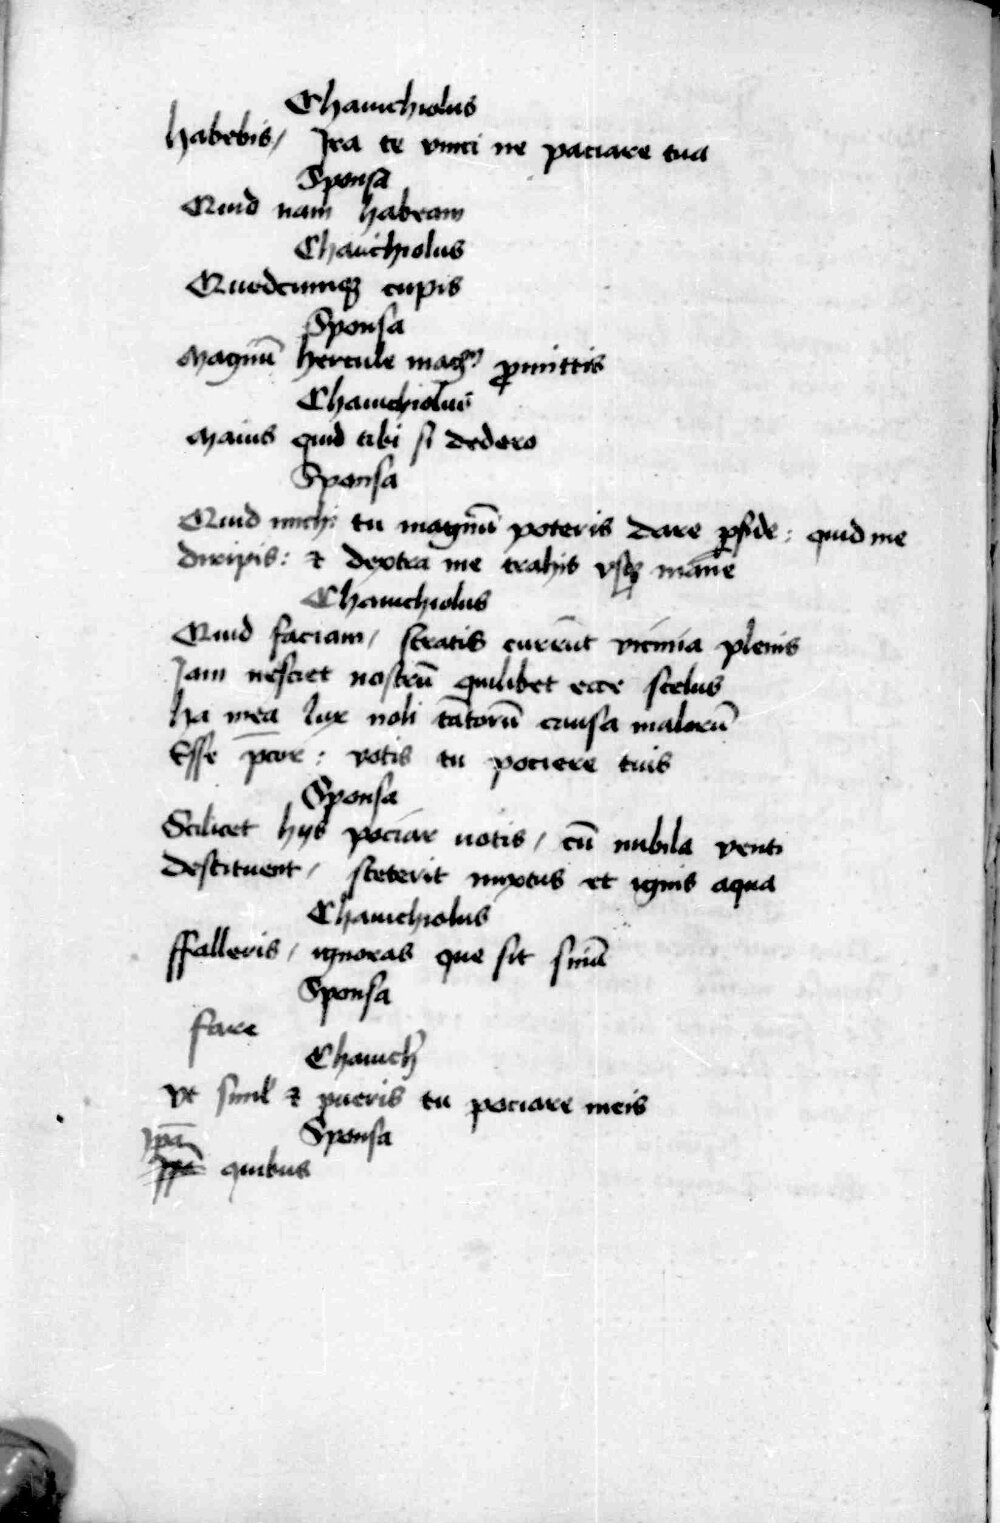 Chauichiolus
habebis / Ira te vinci ne paciare tua
Sponsa
Quid nam habeam
Chauichiolus
Quodcumqꝫ cupis
Sponsa
Magnū hercule ꝓmittis
Chauichiolus
Maius quid tibi si dedero
Sponsa
Quid michi tu magnū poteris dare ꝑfide : quid me
diripis : ⁊ dextra me trahis vsqꝫ manē
Chauichiolus
Quid faciam / stratis currūt vicinia plenis
Iam nesciet nostrū quilibet ecce scelus
ha mea lux noli tātorū causa malorū
Esse p̄cor : votis tu pociere tuis
Sponsa
Scilicet hijs pociar uotis / cū nubila venti
destituent / steterit mixtus et ignis aqua
Chauichiolus
ffalleris / ignoras que sit
Sponsa
fare
Chauich
Vt simul ⁊ pueris tu pociare meis
Sponsa
ip̄a
quibus